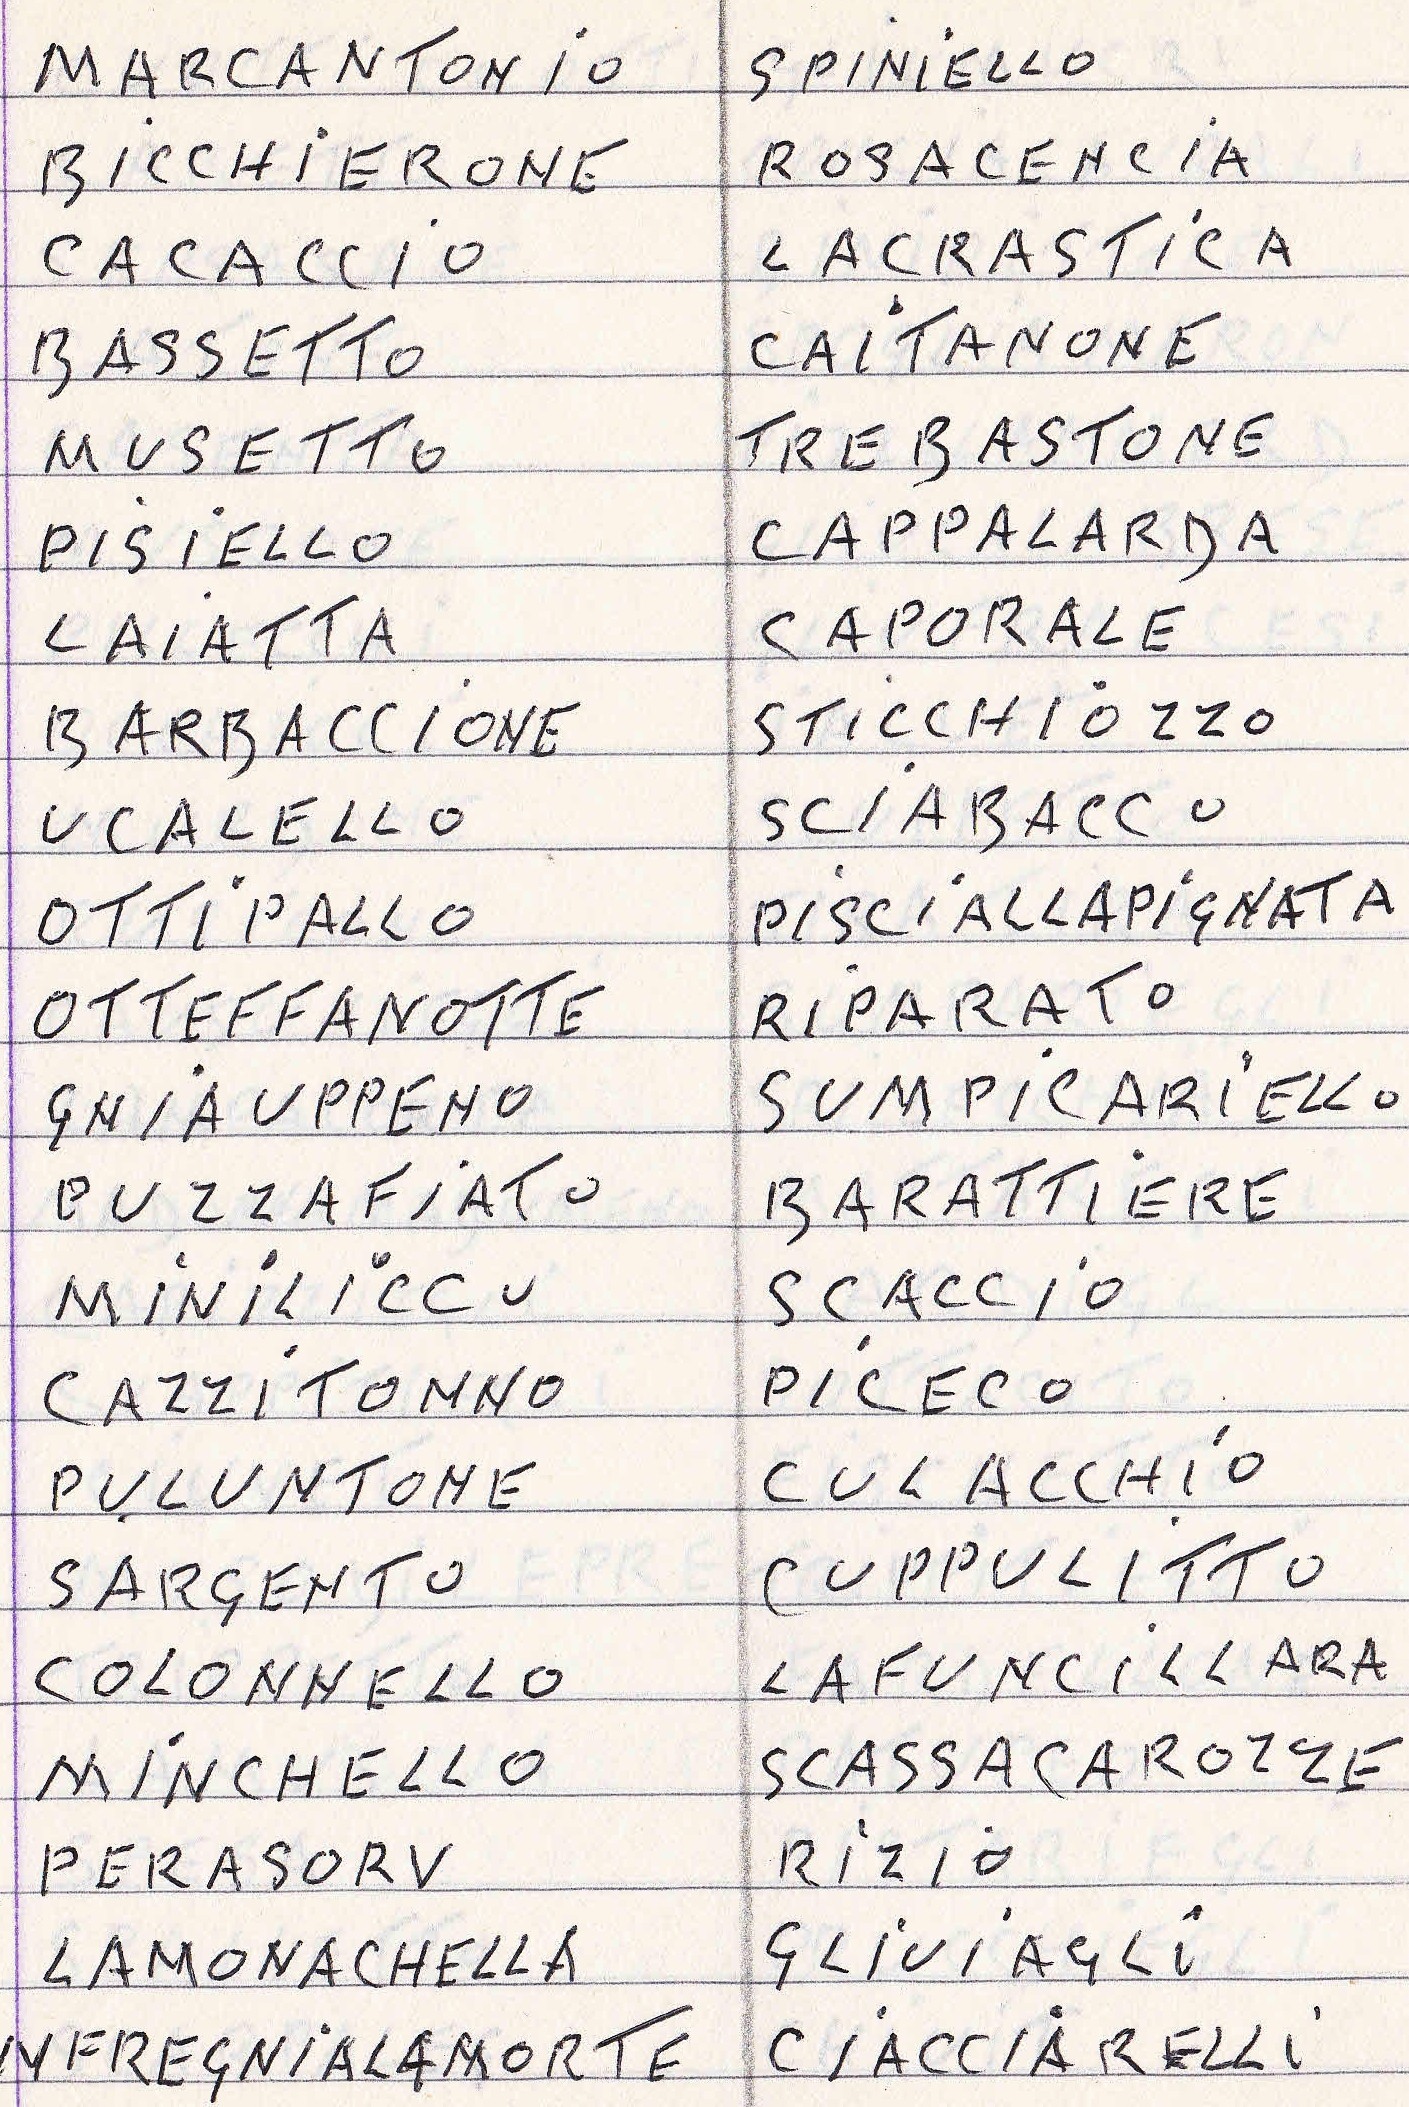 MARCANTONIO
BICCHIERONE
CACACCIO
BASSETTO
MUSETTO
PISIELLO
LAIATTA
BARBACCIONE
UCALELLO
OTTIPALLO
OTTEFFANOTTE
GNIAUPPENO
PUZZAFIATO
MINILICCU
CAZZITONNO
PULUNTONE
SARGENTO
COLONNELLO
MINCHELLO
PERASORV
LAMONACHELLA
NFREGNIALAMORTE
SPINIELLO
ROSACENCIA
LACRASTICA
CAITANONE
TREBASTONE
CAPPALARDA
CAPORALE
STICCHIOZZO
SCIABACCU
PISCIALLAPIGNATA
RIPARATO
SUMPICARIELLO
BARATTIERE
SCACCIO
PICECO
CULACCHIO
CUPPULITTO
LAFUNCILLARA
SCASSACAROZZE
RIZIO
GLIUIAGLI
CIACCIARELLI